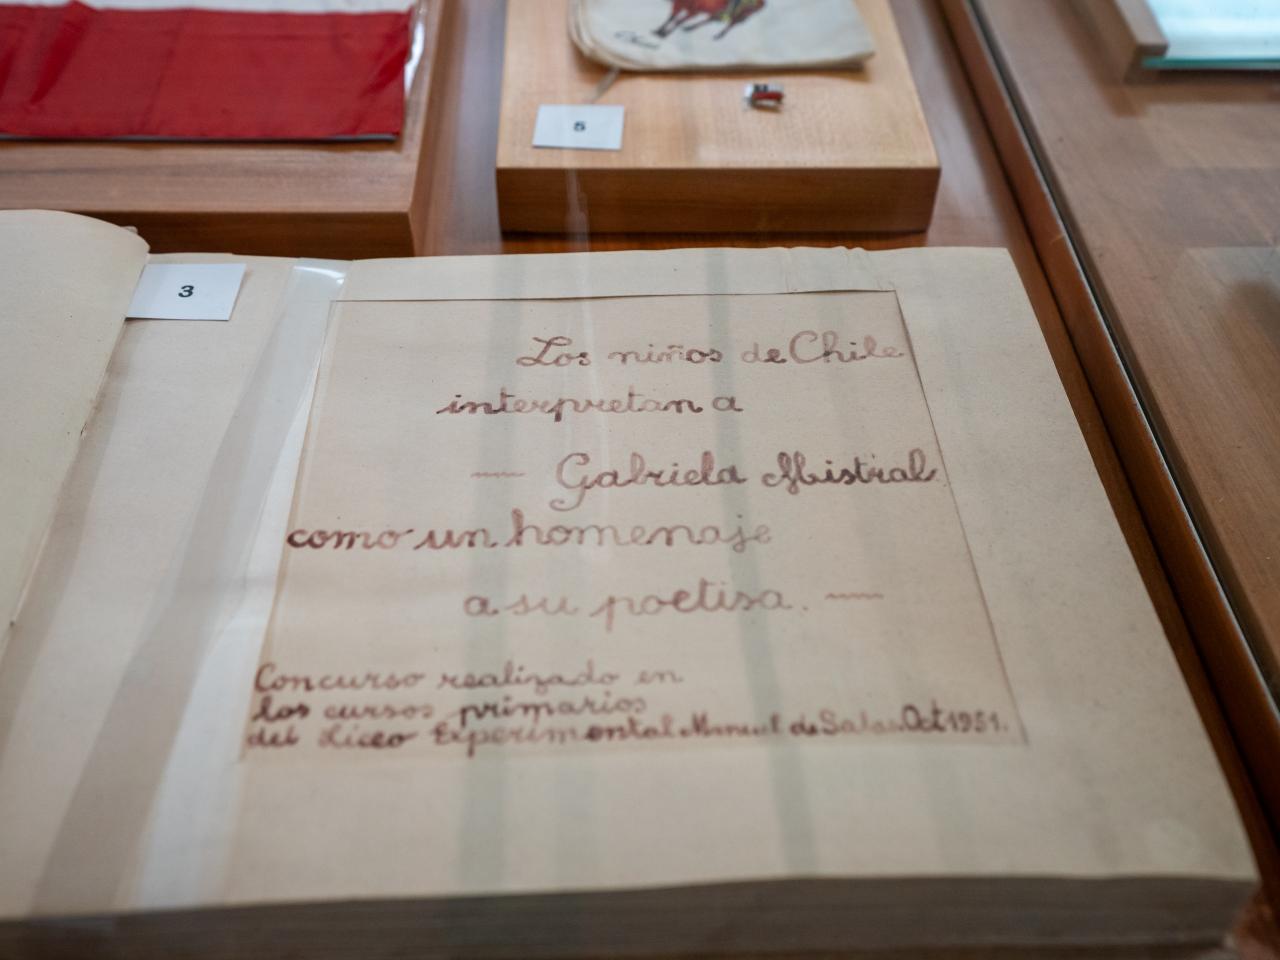 5
3
Los niños de Chile
interpretan a
— Gabriela Mistral
como un homenaje
a su poetisa. —
Concurso realizado en
los cursos primarios
del Liceo Experimental Manuel de Salas. Oct 1951.